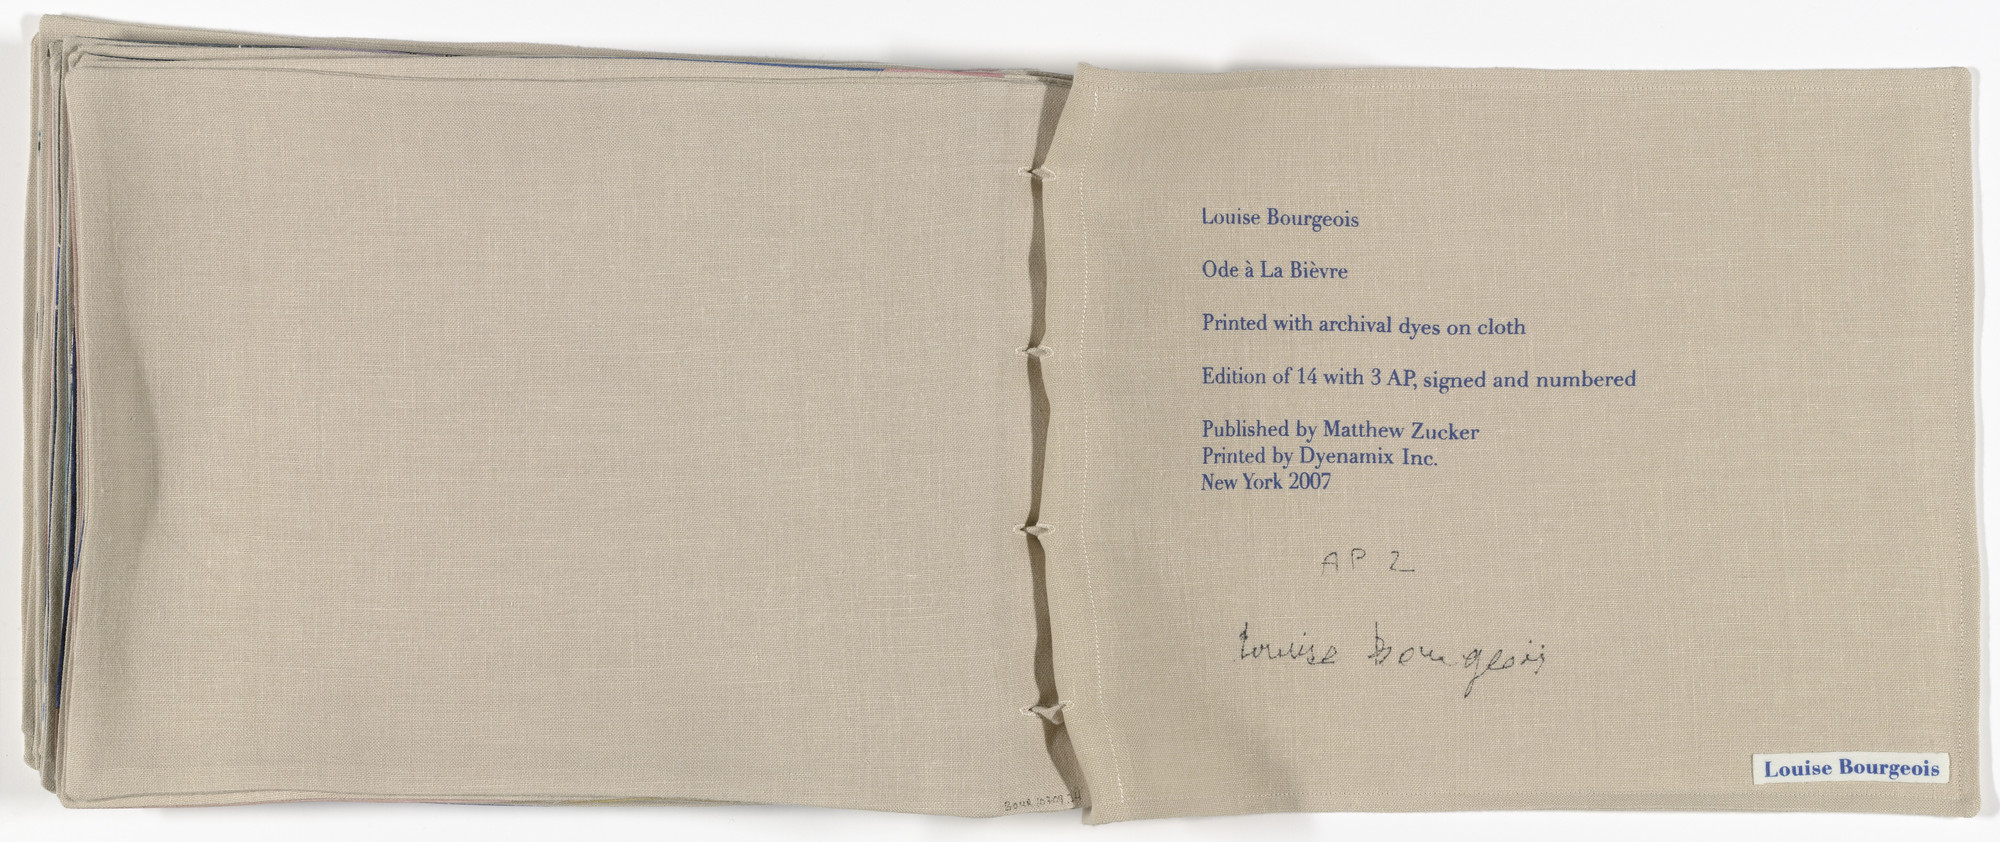 Louise Bourgeois
Ode à La Bièvre
Printed with archival dyes on cloth
Edition of 14 with 3 AP, signed and numbered
Published by Matthew Zucker
Printed by Dyenamix Inc.
New York 2007
AP 2
Louise Bourgeois
Louise Bourgeois
BOUR